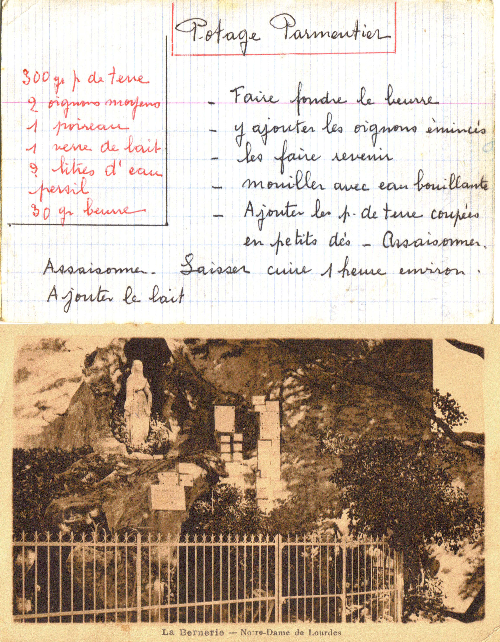 Potage Parmentier
300 gr p de terre
2 oignons moyens
1 poireau
1 verre de lait
2 litres d'eau
persil
30 gr beurre
- Faire fondre le beurre
- y ajouter les oignons émincés
- les faire revenir
- mouiller avec eau bouillante
- Ajouter les p. de terre coupées
en petits dés - Assaisonner.
Assaisonner. Laisser cuire 1 heure environ.
Ajouter le lait
La Bernerie — Notre-Dame de Lourdes